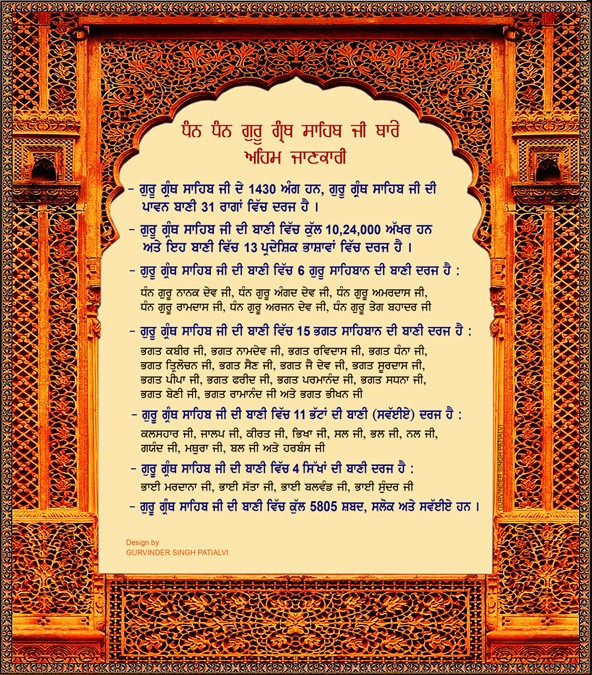 ਧੰਨ ਧੰਨ ਗੁਰੂ ਗ੍ਰੰਥ ਸਾਹਿਬ ਜੀ ਬਾਰੇ
ਅਹਿਮ ਜਾਣਕਾਰੀ
- ਗੁਰੂ ਗ੍ਰੰਥ ਸਾਹਿਬ ਜੀ ਦੇ 1430 ਅੰਗ ਹਨ, ਗੁਰੂ ਗ੍ਰੰਥ ਸਾਹਿਬ ਜੀ ਦੀ
ਪਾਵਨ ਬਾਣੀ 31 ਰਾਗਾਂ ਵਿੱਚ ਦਰਜ ਹੈ ।
- ਗੁਰੂ ਗ੍ਰੰਥ ਸਾਹਿਬ ਜੀ ਦੀ ਬਾਣੀ ਵਿੱਚ ਕੁੱਲ 10,24,000 ਅੱਖਰ ਹਨ
ਅਤੇ ਇਹ ਬਾਣੀ ਵਿੱਚ 13 ਪ੍ਰਦੇਸ਼ਿਕ ਭਾਸ਼ਾਵਾਂ ਵਿੱਚ ਦਰਜ ਹੈ ।
- ਗੁਰੂ ਗ੍ਰੰਥ ਸਾਹਿਬ ਜੀ ਦੀ ਬਾਣੀ ਵਿੱਚ 6 ਗੁਰੂ ਸਾਹਿਬਾਨ ਦੀ ਬਾਣੀ ਦਰਜ ਹੈ :
ਧੰਨ ਗੁਰੂ ਨਾਨਕ ਦੇਵ ਜੀ, ਧੰਨ ਗੁਰੂ ਅੰਗਦ ਦੇਵ ਜੀ, ਧੰਨ ਗੁਰੂ ਅਮਰਦਾਸ ਜੀ,
ਧੰਨ ਗੁਰੂ ਰਾਮਦਾਸ ਜੀ, ਧੰਨ ਗੁਰੂ ਅਰਜਨ ਦੇਵ ਜੀ, ਧੰਨ ਗੁਰੂ ਤੇਗ ਬਹਾਦਰ ਜੀ
- ਗੁਰੂ ਗ੍ਰੰਥ ਸਾਹਿਬ ਜੀ ਦੀ ਬਾਣੀ ਵਿੱਚ 15 ਭਗਤ ਸਾਹਿਬਾਨ ਦੀ ਬਾਣੀ ਦਰਜ ਹੈ :
ਭਗਤ ਕਬੀਰ ਜੀ, ਭਗਤ ਨਾਮਦੇਵ ਜੀ, ਭਗਤ ਰਵਿਦਾਸ ਜੀ, ਭਗਤ ਧੰਨਾ ਜੀ,
ਭਗਤ ਤ੍ਰਿਲੋਚਨ ਜੀ, ਭਗਤ ਸੈਣ ਜੀ, ਭਗਤ ਜੈ ਦੇਵ ਜੀ, ਭਗਤ ਸੂਰਦਾਸ ਜੀ,
ਭਗਤ ਪੀਪਾ ਜੀ, ਭਗਤ ਫਰੀਦ ਜੀ, ਭਗਤ ਪਰਮਾਨੰਦ ਜੀ, ਭਗਤ ਸਧਨਾ ਜੀ,
ਭਗਤ ਬੇਣੀ ਜੀ, ਭਗਤ ਰਾਮਾਨੰਦ ਜੀ ਅਤੇ ਭਗਤ ਭੀਖਨ ਜੀ
- ਗੁਰੂ ਗ੍ਰੰਥ ਸਾਹਿਬ ਜੀ ਦੀ ਬਾਣੀ ਵਿੱਚ 11 ਭੱਟਾਂ ਦੀ ਬਾਣੀ (ਸਵੱਈਏ) ਦਰਜ ਹੈ :
ਕਲਸਹਾਰ ਜੀ, ਜਾਲਪ ਜੀ, ਕੀਰਤ ਜੀ, ਭਿਖਾ ਜੀ, ਸਲ ਜੀ, ਭਲ ਜੀ, ਨਲ ਜੀ,
ਗਯੰਦ ਜੀ, ਮਥੁਰਾ ਜੀ, ਬਲ ਜੀ ਅਤੇ ਹਰਬੰਸ ਜੀ
- ਗੁਰੂ ਗ੍ਰੰਥ ਸਾਹਿਬ ਜੀ ਦੀ ਬਾਣੀ ਵਿੱਚ 4 ਸਿੱਖਾਂ ਦੀ ਬਾਣੀ ਦਰਜ ਹੈ :
ਭਾਈ ਮਰਦਾਨਾ ਜੀ, ਭਾਈ ਸੱਤਾ ਜੀ, ਭਾਈ ਬਲਵੰਡ ਜੀ, ਭਾਈ ਸੁੰਦਰ ਜੀ
- ਗੁਰੂ ਗ੍ਰੰਥ ਸਾਹਿਬ ਜੀ ਦੀ ਬਾਣੀ ਵਿੱਚ ਕੁੱਲ 5805 ਸ਼ਬਦ, ਸਲੋਕ ਅਤੇ ਸਵੱਈਏ ਹਨ ।
Design by
GURVINDER SINGH PATIALVI
GURVINDER SINGH PATIALVI